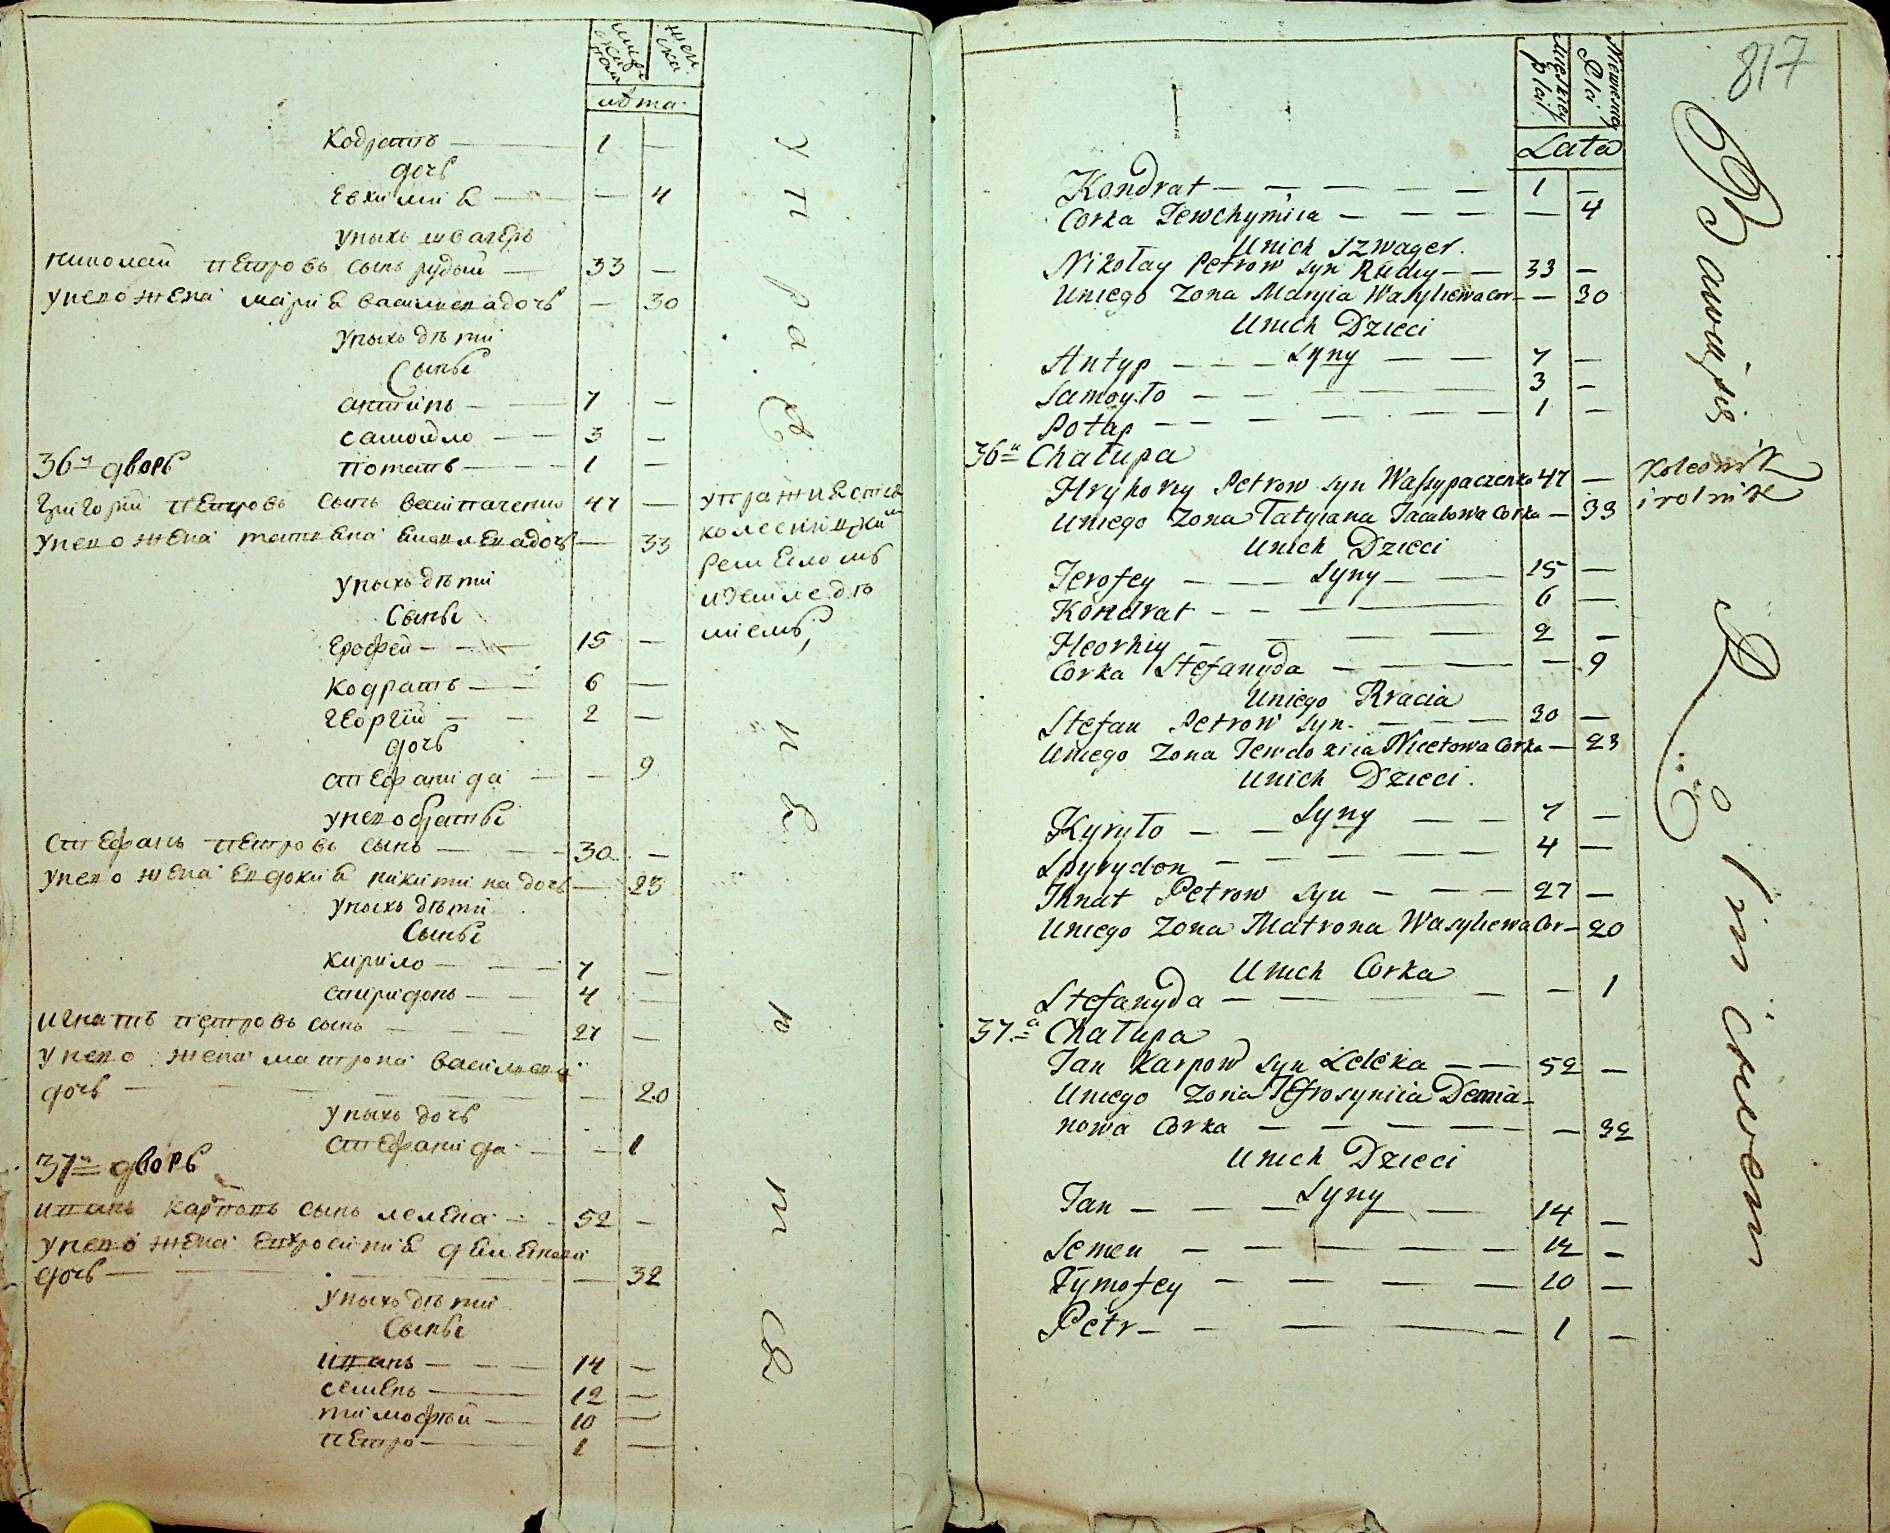 лѣта
Кодратъ — 1 —
дочь
Евхимия — — 4
у ныхъ швагеръ
Николай Петровъ сынъ Рудый — 33 —
у него жена Мария Василиева дочь — 30
у ныхъ дѣти
Сыны
Антипъ — 7 —
Самойло — 3 —
36й дворъ Потапъ — 1 —
Григорий Петровъ сынъ Васипаченко 47 —
у него жена Татияна Яковлева дочь — 33
у ныхъ дѣти
Сыны
Ерофей — 15 —
Кодратъ — 6 —
Георгий — 2 —
дочь
Стефанида — — 9
у него братья
Стефанъ Петровъ сынъ — 30 —
у него жена Евдокия Никитина дочь — 23
у ныхъ дѣти
Сыны
Кирило — 7 —
Спиридонъ — 4 —
Игнатъ Петровъ сынъ — 27 —
у него жена Матрона Василиева
дочь — — 20
у ныхъ дочь
Стефанида — — 1
37й дворъ
Иванъ Карповъ сынъ Лелека — 52 —
у него жена Евфросиния Демянова
дочь — — 32
у ныхъ дѣти
Сыны
Иванъ — 14 —
Семенъ — 12 —
Тимофѣй — 10 —
Петро — 1 —
упражняется
колесницкимъ
ремесломъ
и земледѣ
лиемъ,
817
Męskiey Płci
Niewiesciey Płci
Lata
Kondrat — 1 —
Corka Jewchymiia — — 4
Unich Szwager.
Nikołay Petrow syn Rudy — 33 —
Uniego Zona Maryia Wasyliewa Cor — 30
Unich Dzieci
Syny
Antyp — 7 —
Samoyło — 3 —
Potap — 1 —
36a Chałupa
Hryhory Petrow syn Wasypaczenko 47 —
Uniego Zona Tatyiana Jacubowa Corka — 33
Unich Dzieci
Syny
Jerofey — 15 —
Kondrat — 6 —
Heorhiy — 2 —
Corka Stefanyda — — 9
Uniego Bracia
Stefan Petrow syn — 30 —
Uniego Zona Jewdokiia Nicetowa Corka — 23
Unich Dzieci.
Syny
Kyryło — 7 —
Spyrydon — 4 —
Ihnat Petrow syn — 27 —
Uniego Zona Matrona Wasyliewa Cor — 20
Unich Corka
Stefanyda — — 1
37.a Chałupa
Jan Karpow syn Leleka — 52 —
Uniego Zona Jefrosyniia Demia-
nowa Corka — — 32
Unich Dzieci
Syny
Jan — 14 —
Semen — 12 —
Tymofey — 10 —
Petr — 1 —
Kolesnik
i rolnik